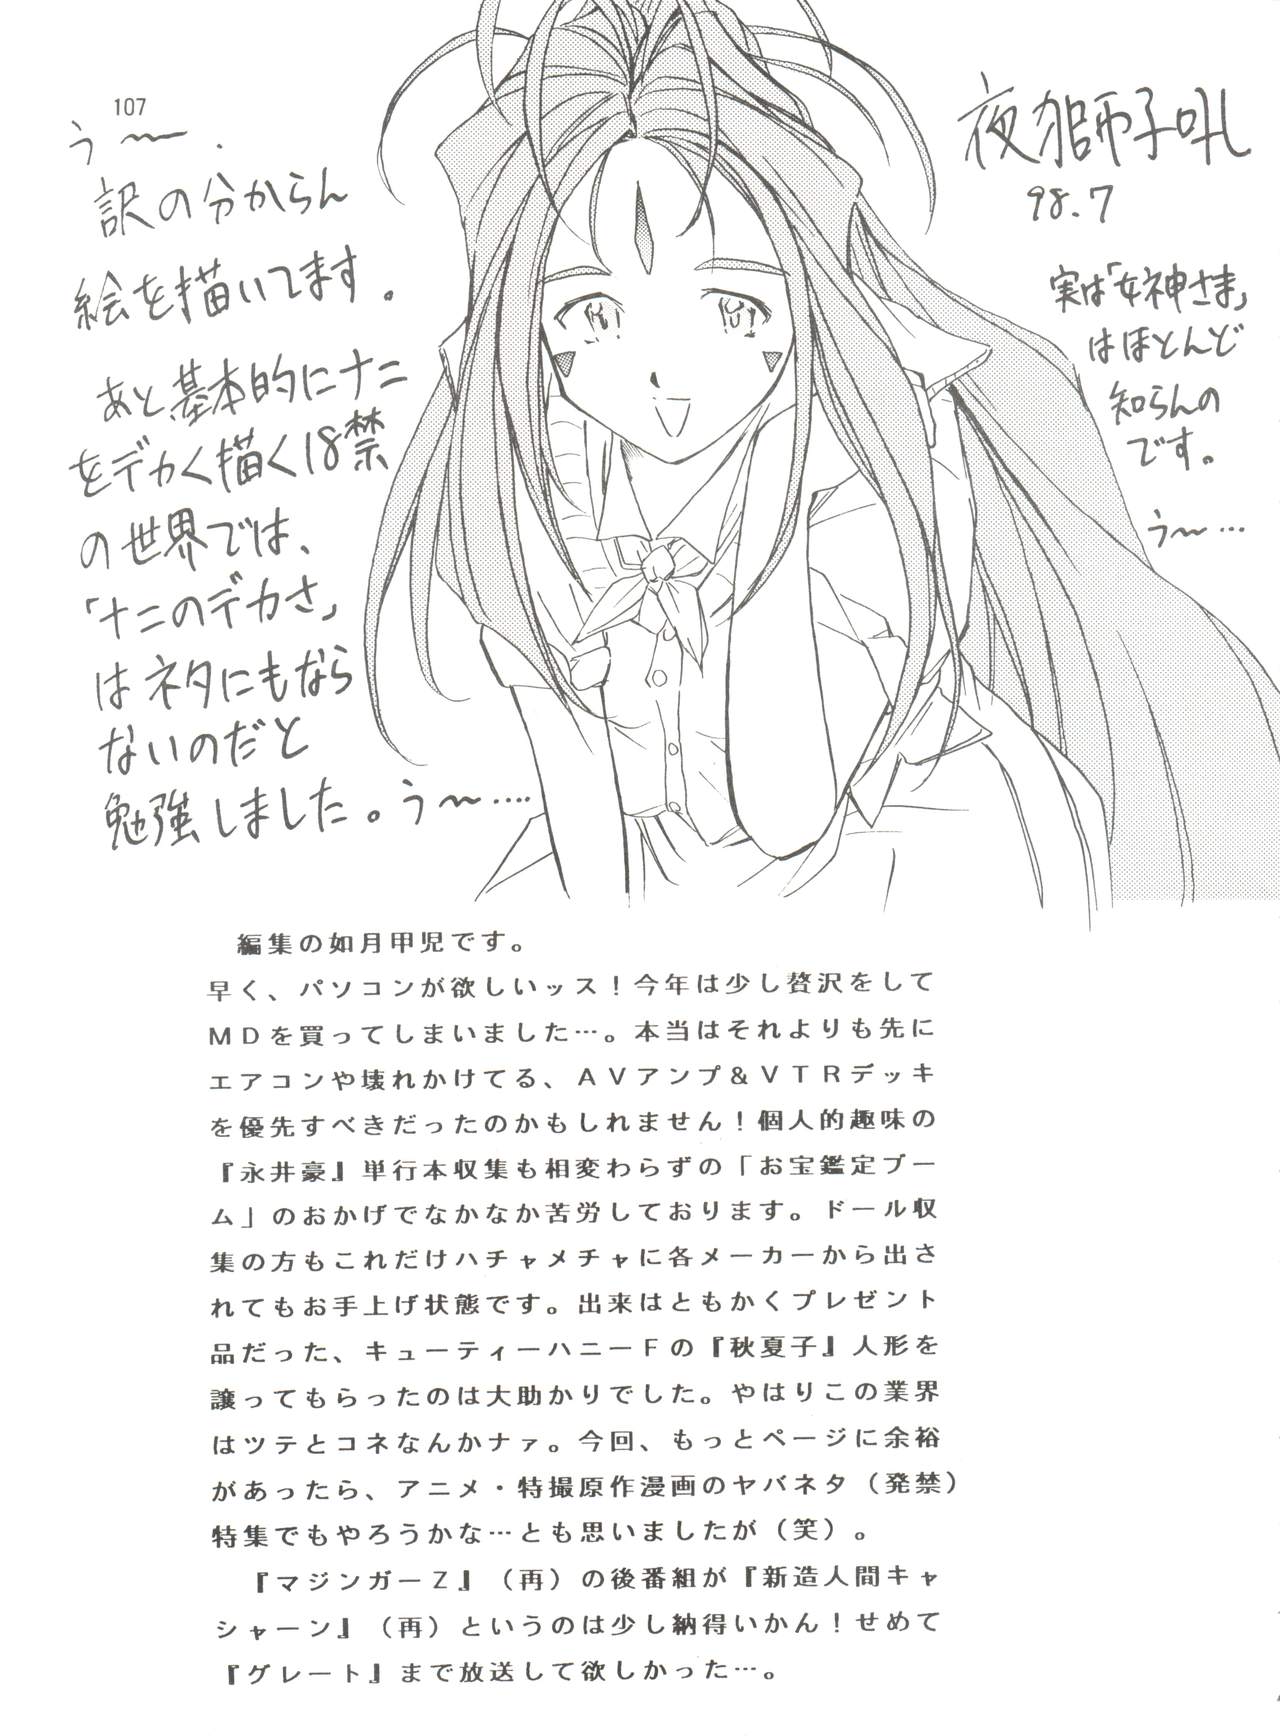 107
う〜.
訳の分からん
絵を描いてます。
あと基本的にナニ
をデカく描く18禁
の世界では、
「ナニのデカさ」
はネタにもなら
ないのだと
勉強しました。う〜‥‥
98.7
実は「女神さま」
はほとんど
知らんの
です。
う〜…
編集の如月甲児です。
早く、パソコンが欲しいッス！今年は少し贅沢をして
ＭＤを買ってしまいました…。本当はそれよりも先に
エアコンや壊れかけてる、ＡＶアンプ＆ＶＴＲデッキ
を優先すべきだったのかもしれません！個人的趣味の
『永井豪』単行本収集も相変わらずの「お宝鑑定ブー
ム」のおかげでなかなか苦労しております。ドール収
集の方もこれだけハチャメチャに各メーカーから出さ
れてもお手上げ状態です。出来はともかくプレゼント
品だった、キューティーハニーＦの『秋夏子』人形を
譲ってもらったのは大助かりでした。やはりこの業界
はツテとコネなんかナァ。今回、もっとページに余裕
があったら、アニメ・特撮原作漫画のヤバネタ（発禁）
特集でもやろうかな…とも思いましたが（笑）。
『マジンガーＺ』（再）の後番組が『新造人間キャ
シャーン』（再）というのは少し納得いかん！せめて
『グレート』まで放送して欲しかった…。